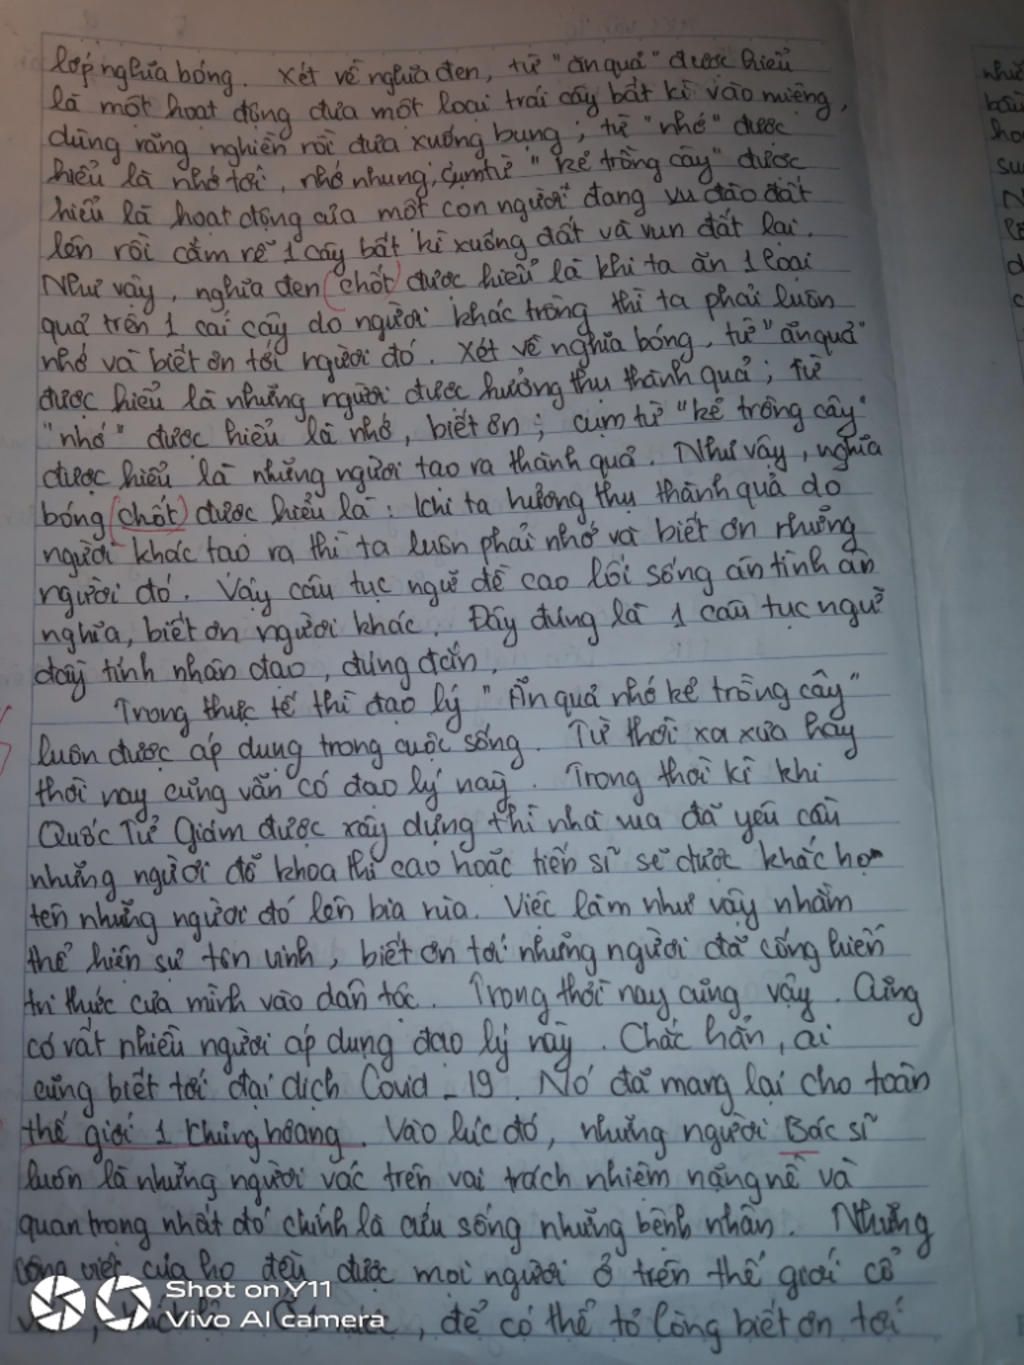 lớp nghĩa bóng. Xét về nghĩa đen, từ "ăn quả" được hiểu
là một hoạt động đưa một loại trái cây bất kì vào miệng,
dùng răng nghiền rồi đưa xuống bụng; từ "nhớ" được
hiểu là nhớ tới, nhớ nhung; cụm từ "kẻ trồng cây" được
hiểu là hoạt động của một con người đang vu đào đất
lên rồi cắm rễ 1 cây bất kì xuống đất và vun đất lại.
Như vậy, nghĩa đen (chốt) được hiểu là khi ta ăn 1 loại
quả trên 1 cái cây do người khác trồng thì ta phải luôn
nhớ và biết ơn tới người đó. Xét về nghĩa bóng, từ "ăn quả"
được hiểu là những người được hưởng thụ thành quả; từ
"nhớ" được hiểu là nhớ, biết ơn; cụm từ "kẻ trồng cây"
được hiểu là những người tạo ra thành quả. Như vậy, nghĩa
bóng (chốt) được hiểu là: khi ta hưởng thụ thành quả do
người khác tạo ra thì ta luôn phải nhớ và biết ơn những
người đó. Vậy câu tục ngữ đề cao lối sống ân tình ân
nghĩa, biết ơn người khác. Đây đúng là 1 câu tục ngữ
đầy tính nhân đạo, đúng đắn.
Trong thực tế thì đạo lý "Ăn quả nhớ kẻ trồng cây"
luôn được áp dụng trong cuộc sống. Từ thời xa xưa hay
thời nay cũng vẫn có đạo lý này. Trong thời kì khi
Quốc Tử Giám được xây dựng thì nhà vua đã yêu cầu
những người đỗ khoa thi cao hoặc tiến sĩ sẽ được khắc họ
tên những người đó lên bia rùa. Việc làm như vậy nhằm
thể hiện sự tôn vinh, biết ơn tới những người đã cống hiến
tri thức của mình vào dân tộc. Trong thời nay cũng vậy. Cũng
có vất nhiều người áp dụng đạo lý này. Chắc hẳn, ai
cũng biết tới đại dịch Covid - 19. Nó đã mang lại cho toàn
thế giới 1 khủng hoảng. Vào lúc đó, những người Bác sĩ
luôn là những người vác trên vai trách nhiệm nặng nề và
quan trọng nhất đó chính là cứu sống những bệnh nhân. Những
công việc của họ đều được mọi người ở trên thế giới cổ
, để có thể tỏ lòng biết ơn tới
Shot on Y11
Vivo AI camera